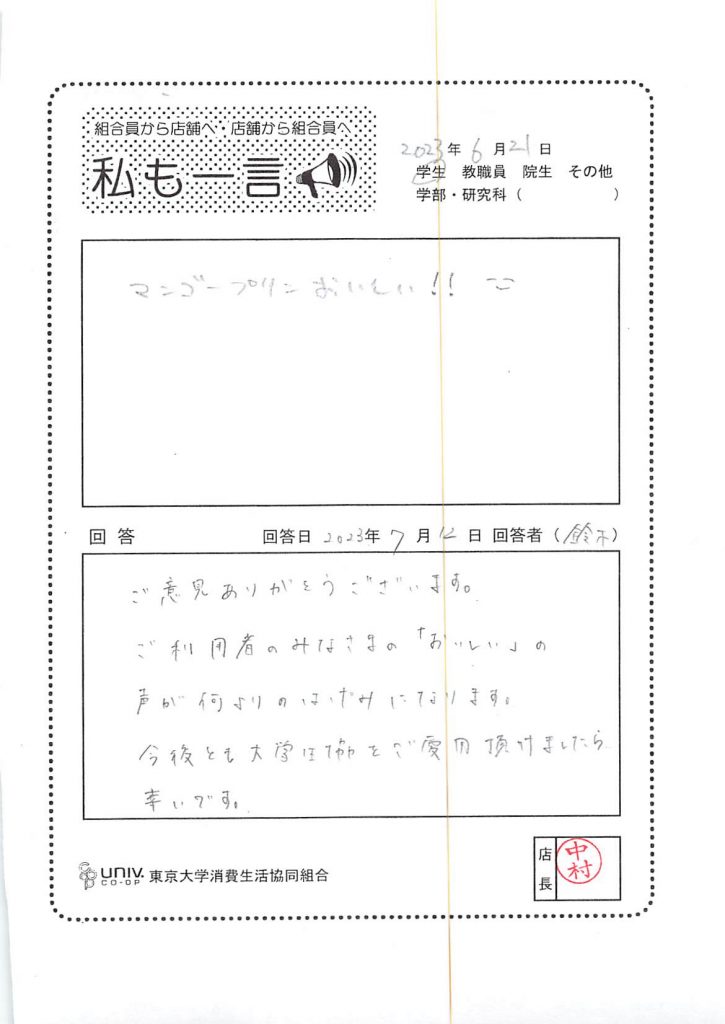 組合員から店舗へ・店舗から組合員へ
私も一言
2023年 6月21日
学生 教職員 院生 その他
学部・研究科( )
マンゴープリンおいしい!!
回答 回答日 2023年 7月12日 回答者(鈴木)
ご意見ありがとうございます。
ご利用者のみなさまの「おいしい」の
声が何よりのはげみになります。
今後とも大学生協をご愛用頂けましたら
幸いです。
UNIV. CO-OP 東京大学消費生活協同組合
店長 中村